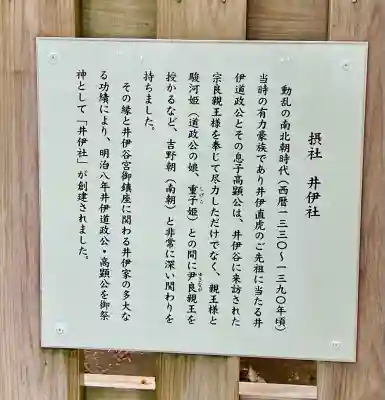 摂社　井伊社
動乱の南北朝時代（西暦一三三〇～一三九〇年頃）
当時の有力豪族であり井伊直虎のご先祖に当たる井
伊道政公とその息子高顕公は、井伊谷に来訪された
宗良親王様を奉じて尽力しただけでなく、親王様と
駿河姫（道政公の娘、重子姫）との間に尹良親王を
授かるなど、吉野朝（南朝）と非常に深い関わりを
持ちました。
その縁と井伊谷宮御鎮座に関わる井伊家の多大な
る功績により、明治八年井伊道政公・高顕公を御祭
神として「井伊社」が創建されました。